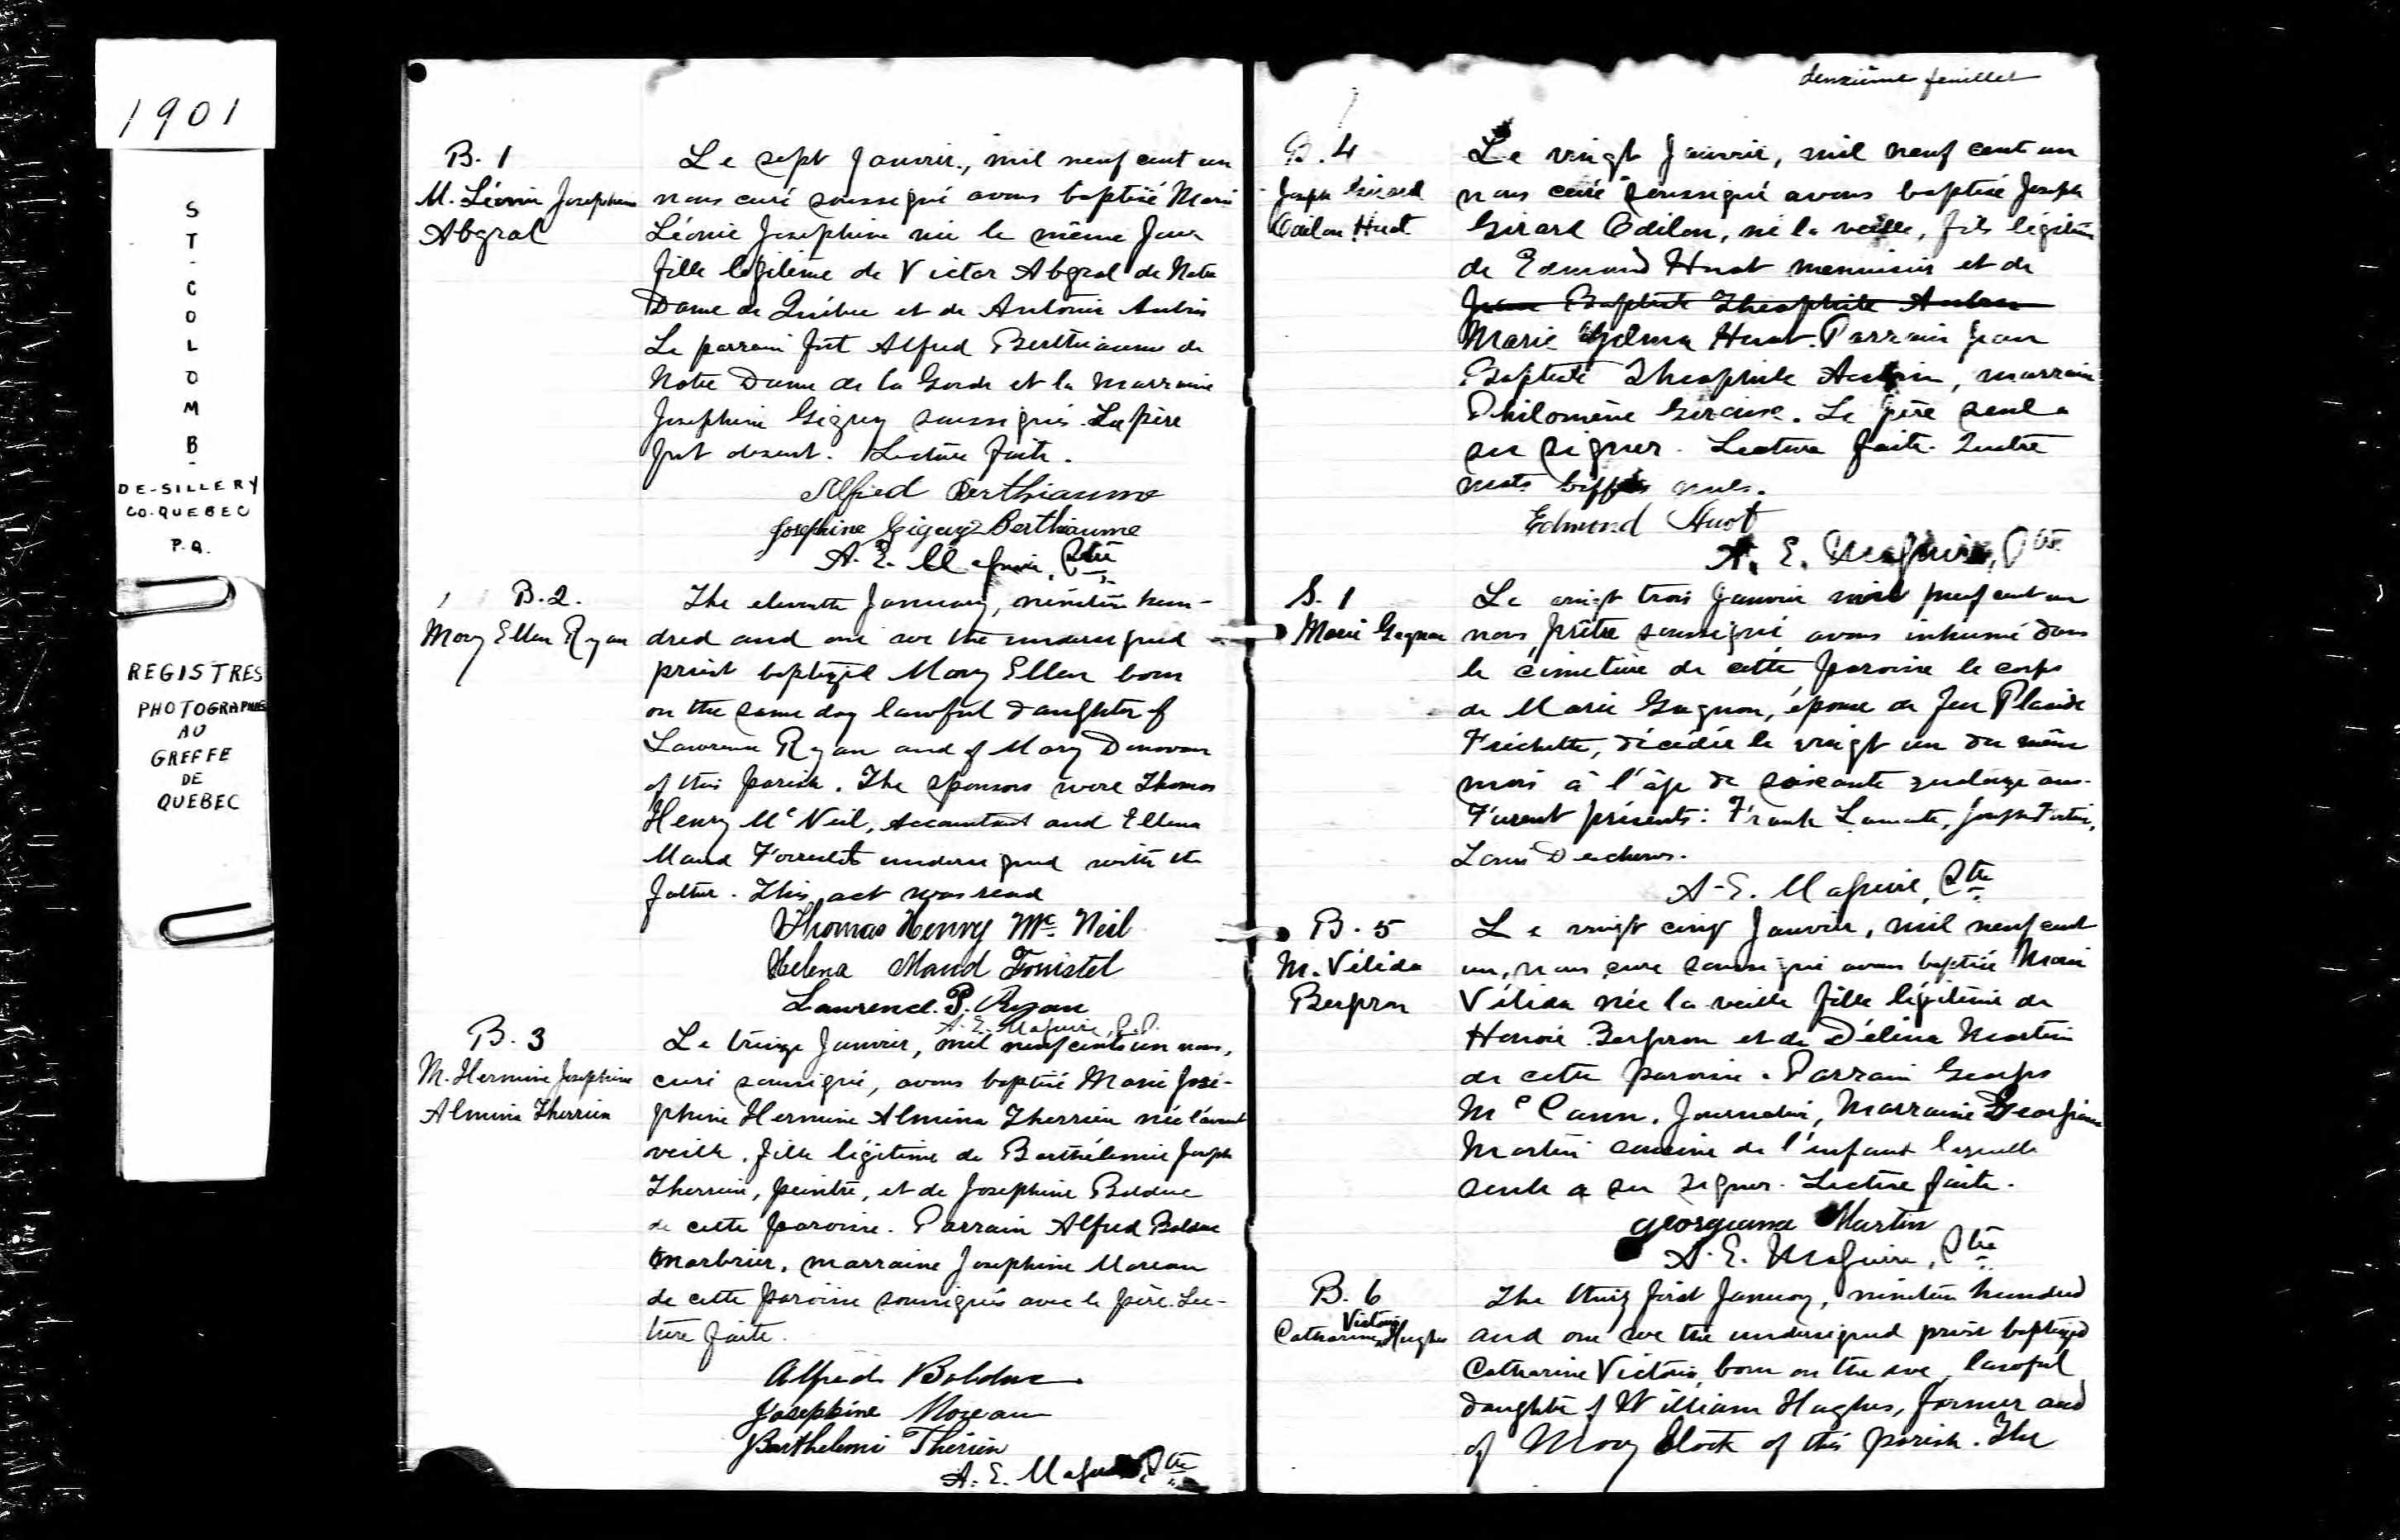 1901
ST-COLOMB-
DE-SILLERY
CO-QUEBEC
P.Q.
REGISTRES
PHOTOGRAPHIES
AU
GREFFE
DE
QUEBEC
B. 1
M. Léonie Josephine
Abgral
Le sept Janvier, mil neuf cent un
nous curé soussigné avons baptisé Marie
Léonie Josephine née le même jour
fille légitime de Victor Abgral de Notre
Dame de Québec et de Antonie Aubin
Le parrain fut Alfred Berthiaume de
Notre Dame de la Garde et la marraine
Josephine Giguy soussignés. Le père
fut absent. Lecture faite.
Alfred Berthiaume
Josephine Giguy Berthiaume
A. E. Maguire, Ptre
B. 2.
Mary Ellen Ryan
The eleventh January, nineteen hun-
dred and one we the undersigned
priest baptized Mary Ellen born
on the same day lawful daughter of
Lawrence Ryan and of Mary Donovan
of this parish. The sponsors were Thomas
Henry McNeil, accountant and Ellena
Maud undersigned with the
father. This act was read
Thomas Henry Mc. Neil
Helena Maud
Lawrence. P. Ryan
A. E. Maguire, P.P.
B. 3
M. Hermine Josephine
Almina Therrien
Le treize Janvier, mil neuf cents un nous,
curé soussigné, avons baptisé Marie José-
phine Hermine Almina Therrien née l'avant
veille, fille légitime de Barthélemie Joseph
Therrien, peintre, et de Josephine Bolduc
de cette paroisse. Parrain Alfred Bolduc
marbrier, marraine Josephine Moreau
de cette paroisse soussignés avec le père. Lec-
ture faite.
Alfred Bolduc
Josephine Moreau
Barthelemi Therien
A. E. Maguire, Ptre
deuxième feuillet
B. 4
Joseph Girard
Odilon Huot
Le vingt Janvier, mil neuf cent un
nous curé soussigné avons baptisé Joseph
Girard Odilon, né la veille, fils légitime
de Edmond Huot menuisier et de
Jean Baptiste Theophile Aubin
Marie Huot. Parrain Jean
Baptiste Theophile Aubin, marraine
Philomène Gervais. Le père seul a
su signer. Lecture faite. Quatre
mots biffés nuls.
Edmond Huot
A. E. Maguire, Ptre
S. 1
Marie Gagnon
Le vingt trois Janvier mil neuf cent un
nous, prêtre soussigné avons inhumé dans
le cimetière de cette paroisse le corps
de Marie Gagnon, épouse de feu Placide
Frichette, décédée le vingt un du même
mois à l'âge de soixante quatorze ans.
Furent présents: Frank Lamonte, Joseph Fortin,
Louis Deschenes.
A. E. Maguire, Ptre
B. 5
M. Vélida
Bergeron
Le vingt cinq Janvier, mil neuf cent
un, nous curé soussigné avons baptisé Marie
Vélida née la veille fille légitime de
Honoré Bergeron et de Délina Martin
de cette paroisse. Parrain Georges
McCann, Journalier, Marraine Georgiana
Martin cousine de l'enfant laquelle
seule a su signer. Lecture faite.
Georgianna Martin
A. E. Maguire, Ptre
B. 6
Catharine Victoria Hughes
The thirty first January, nineteen hundred
and one we the undersigned priest baptized
Catharine Victoria, born on the eve, lawful
daughter of William Hughes, farmer and
of Mary of this parish. The